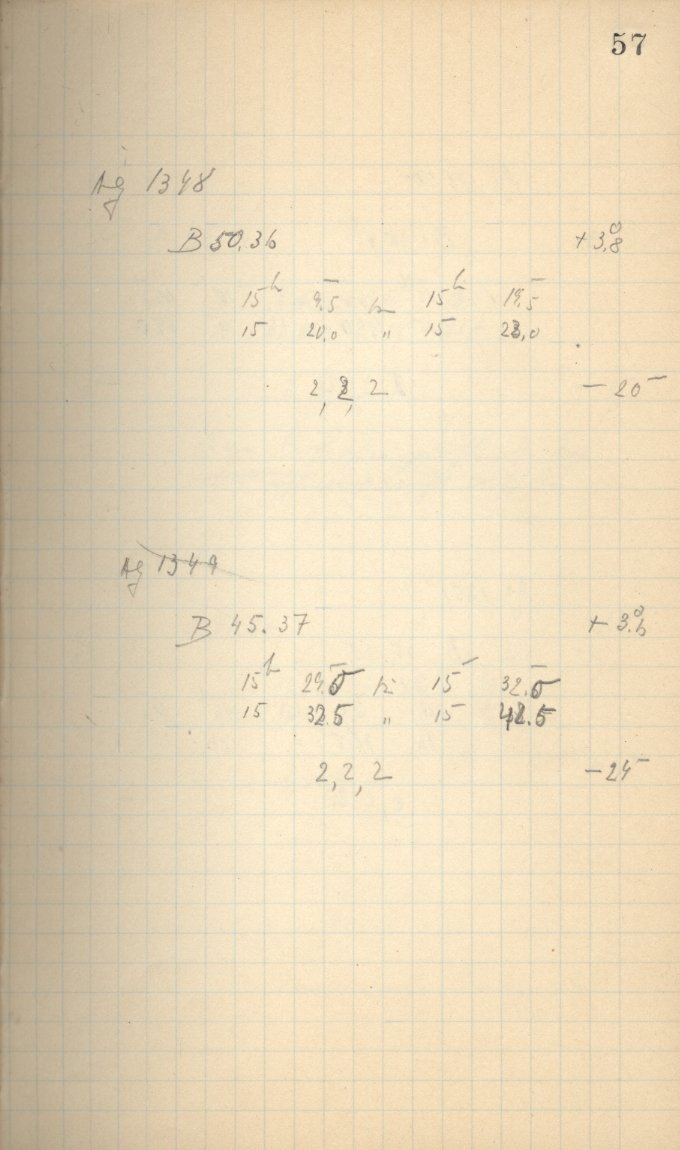 57
Ag 1348
B 50.36 +3.8°
15h 9.5 bis 15h 19.5
15 20.0 " 15 23.0
2, 2, 2 −20
Ag 1349
B 45.37 +3.6°
15h 29.5 bis 15 32.5
15 32.5 " 15 42.5
2, 2, 2 −24